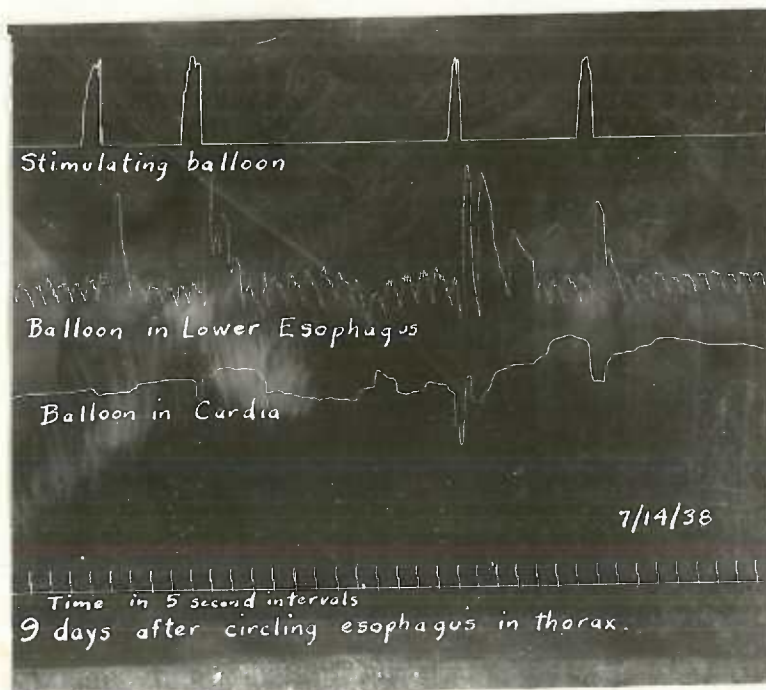 Stimulating balloon
Balloon in Lower Esophagus
Balloon in Cardia
7/14/38
Time in 5 second intervals
9 days after circling esophagus in thorax.